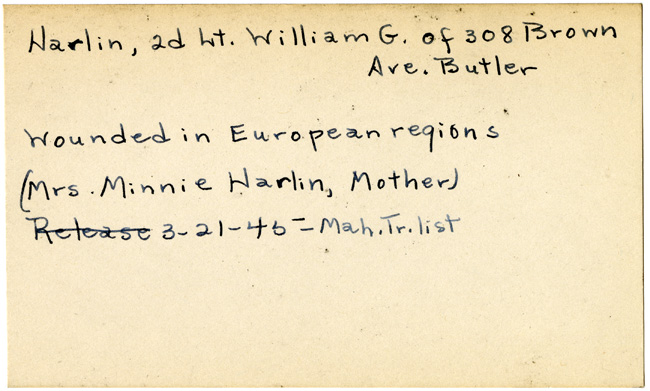 Harlin, 2d Lt. William G. of 308 Brown
Ave. Butler
Wounded in European regions
(Mrs. Minnie Harlin, Mother)
Release 3-21-45 - Mah. Tr. list